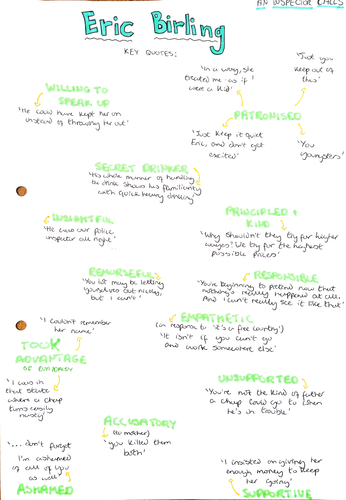 AN INSPECTOR CALLS
Eric Birling
KEY QUOTES:
'In a way, she
treated me as if I
were a kid'
'Just you
keep out of
this'
WILLING TO
SPEAK UP
'He could have kept her on
instead of throwing her out'
PATRONISED
'Just keep it quiet
Eric, and don't get
excited'
'You
youngsters'
SECRET DRINKER
'His whole manner of handling
the drink shows his familiarity
with quick heavy drinking'
INSIGHTFUL
'He was our police
inspector all right'
PRINCIPLED +
KIND
'Why shouldn't they try for higher
wages? We try for the highest
possible prices'
REMORSEFUL
'You lot may be letting
yourselves out nicely,
but I can't'
RESPONSIBLE
'You're beginning to pretend now that
nothing's really happened at all.
And I can't really see it like that'
'I couldn't remember
her name'
EMPATHETIC
(in response to 'it's a free country')
'It isn't if you can't go
and work somewhere else'
TOOK
ADVANTAGE
OF
'I was in
that state
where a chap
turns easily
nasty'
UNSUPPORTED
'You're not the kind of father
a chap could go to when
he's in trouble'
ACCUSATORY
(to mother)
'you killed them
both'
'... don't forget
I'm ashamed
of all of you
as well'
ASHAMED
'I insisted on giving her
enough money to keep
her going'
SUPPORTIVE